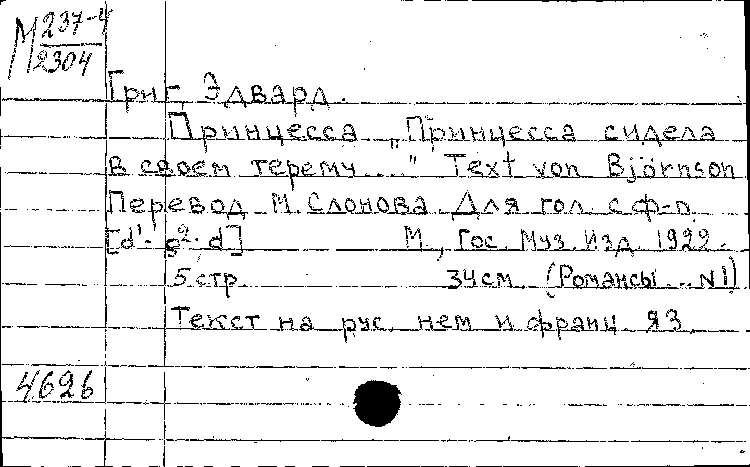 М 237-4
2304
Григ, Эдвард.
Принцесса „Принцесса сидела
в своем терему...." Text von Björnson
Перевод М. Слонова. Для гол. с ф-п.
М., Гос. Муз. Изд. 1922.
5 стр. 34 см. (Романсы... №1)
Текст на рус. нем и франц. яз.
4626